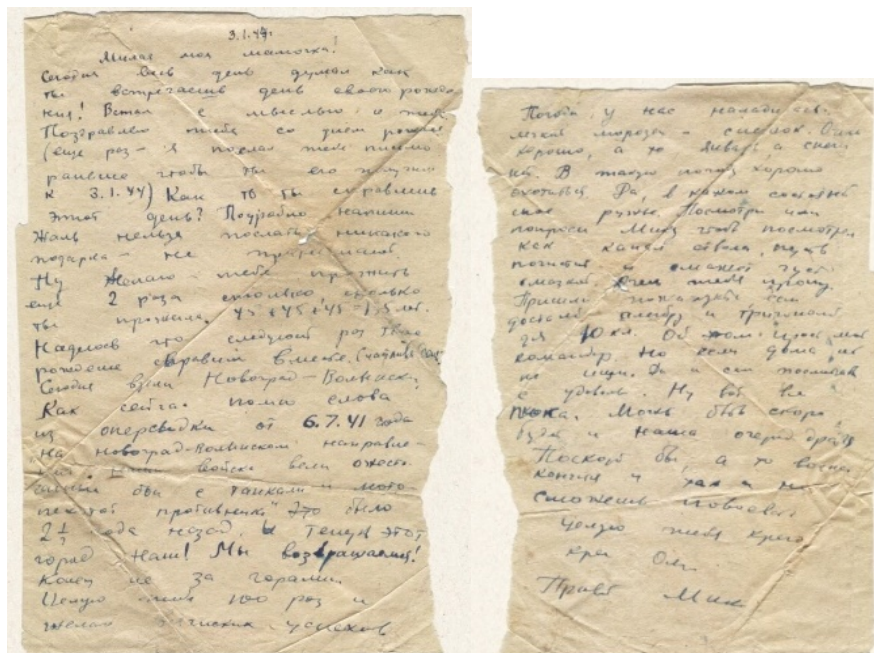 3.1.44г.
Милая моя мамочка!
Сегодня весь день думал как
ты встречаешь день своего рожде
ния! Встал с мыслью о тебе.
Поздравляю тебя со днем рожде
(еще раз - я послал тебе письмо
раньше чтобы ты его получила
к 3.1.44) Как то ты справила
этот день? Подробно напиши
Жаль нельзя послать никакого
подарка - не принимают.
Ну желаю тебе прожить
еще 2 раза столько сколько
ты прожила. 45+45+45=135 лет.
Надеюсь что следующий раз твое
рождение справим вместе.
Сегодня взяли Новоград-Волынск.
Как сейчас помню слова
из оперсводки от 6.7.41 года
"на Новоград-Волынском направле-
нии наши войска вели ожесто
ченный бои с танками и мото
пехотой противника" Это было
2 1/2 года назад. И теперь этот
город наш! Мы возвращаемся!
Конец не за горами.
Целую тебя 100 раз и
желаю успехов
Погода у нас наладилась.
легкий морозец - снежок. Очень
хорошо, а то январь а снега
нет. В такую погоду хорошо
охотиться. Да, в каком состояний
мое ружье. Посмотри или
попроси Мишу чтоб посмотрел
как канал ствола, пусть
почистит и смажет густо
смазкой. Очень тебя прошу.
Пришли пожалуйста, если
достанешь алгебру и тригономет
для 10 кл. Об этом просит мой
командир. Но если дома нет
не ищи. Да и сам посмотрю
с удовол. Ну вот все
пока. Может быть скоро
будет и наша очередь драться
Поскорей бы, а то война
кончится и так и не
сможешь повоевать
Целую тебя крепко
кре
Привет Мише